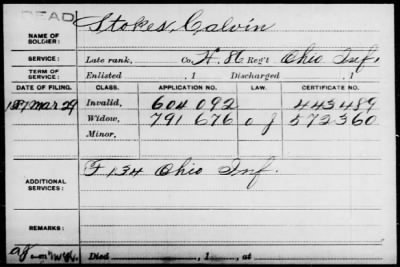 DEAD
NAME OF SOLDIER: Stokes, Calvin
SERVICE: Late rank, Co. H. 86 Reg't Ohio Inf.
TERM OF SERVICE: Enlisted , 1 Discharged , 1
DATE OF FILING. CLASS. APPLICATION NO. LAW. CERTIFICATE NO.
Mar 29 Invalid, 604 092 443489
Widow, 791 676 572360
Minor.
ADDITIONAL SERVICES: F 134 Ohio Inf.
REMARKS:
Died , 1 , at